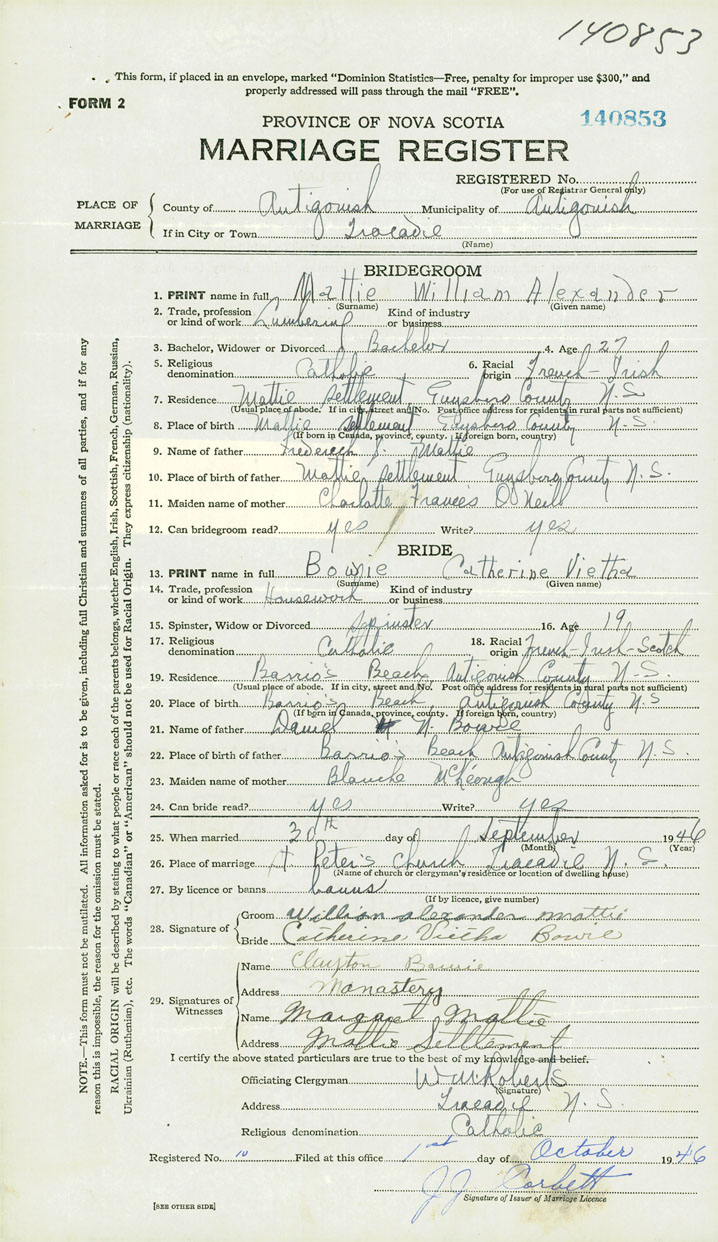 140853
This form, if placed in an envelope, marked "Dominion Statistics—Free, penalty for improper use $300," and
properly addressed will pass through the mail "FREE".
FORM 2
140853
PROVINCE OF NOVA SCOTIA
MARRIAGE REGISTER
REGISTERED No.
(For use of Registrar General only)
PLACE OF MARRIAGE
County of Antigonish Municipality of Antigonish
If in City or Town Tracadie
(Name)
BRIDEGROOM
1. PRINT name in full Mattie William Alexander
(Surname) (Given name)
2. Trade, profession or kind of work Lumbering Kind of industry or business
3. Bachelor, Widower or Divorced Bachelor 4. Age 27
5. Religious denomination Catholic 6. Racial origin French-Irish
7. Residence Mattie Settlement, Guysboro County N.S.
(Usual place of abode. If in city, street and No. Post office address for residents in rural parts not sufficient)
8. Place of birth Mattie Settlement Guysboro County N.S.
(If born in Canada, province, county. If foreign born, country)
9. Name of father Frederick J. Mattie
10. Place of birth of father Mattie Settlement Guysboro County N.S.
11. Maiden name of mother Charlotte Frances O'Neill
12. Can bridegroom read? yes Write? yes
BRIDE
13. PRINT name in full Bowie Catherine Vietha
(Surname) (Given name)
14. Trade, profession or kind of work Housework Kind of industry or business
15. Spinster, Widow or Divorced Spinster 16. Age 19
17. Religious denomination Catholic 18. Racial origin French-Irish-Scotch
19. Residence Barrio's Beach, Antigonish County N.S.
(Usual place of abode. If in city, street and No. Post office address for residents in rural parts not sufficient)
20. Place of birth Barrio's Beach, Antigonish County N.S
(If born in Canada, province, county. If foreign born, country)
21. Name of father Daniel N. Bowie
22. Place of birth of father Barrio's Beach Antigonish County N.S.
23. Maiden name of mother Blanche McKeough
24. Can bride read? yes Write? yes
25. When married 30th day of September 1946
(Month) (Year)
26. Place of marriage St Peter's Church Tracadie N.S.
(Name of church or clergyman's residence or location of dwelling house)
27. By licence or banns banns
(If by licence, give number)
28. Signature of
Groom William alexander mattie
Bride Catherine Vietha Bowie
29. Signatures of Witnesses
Name Clayton Bowie
Address Monastery
Name Margaret Mattie
Address Mattie Settlement
I certify the above stated particulars are true to the best of my knowledge and belief.
Officiating Clergyman W. M. Roberts
(Signature)
Address Tracadie N.S.
Religious denomination Catholic
Registered No. 10 Filed at this office 1st day of October 1946
J J Corbett
Signature of Issuer of Marriage Licence
[SEE OTHER SIDE]
NOTE.—This form must not be mutilated. All information asked for is to be given, including full Christian and surnames of all parties, and if for any
reason this is impossible, the reason for the omission must be stated.
RACIAL ORIGIN will be described by stating to what people or race each of the parents belongs, whether English, Irish, Scottish, French, German, Russian,
Ukrainian (Ruthenian), etc. The words "Canadian" or "American" should not be used for Racial Origin. They express citizenship (nationality).